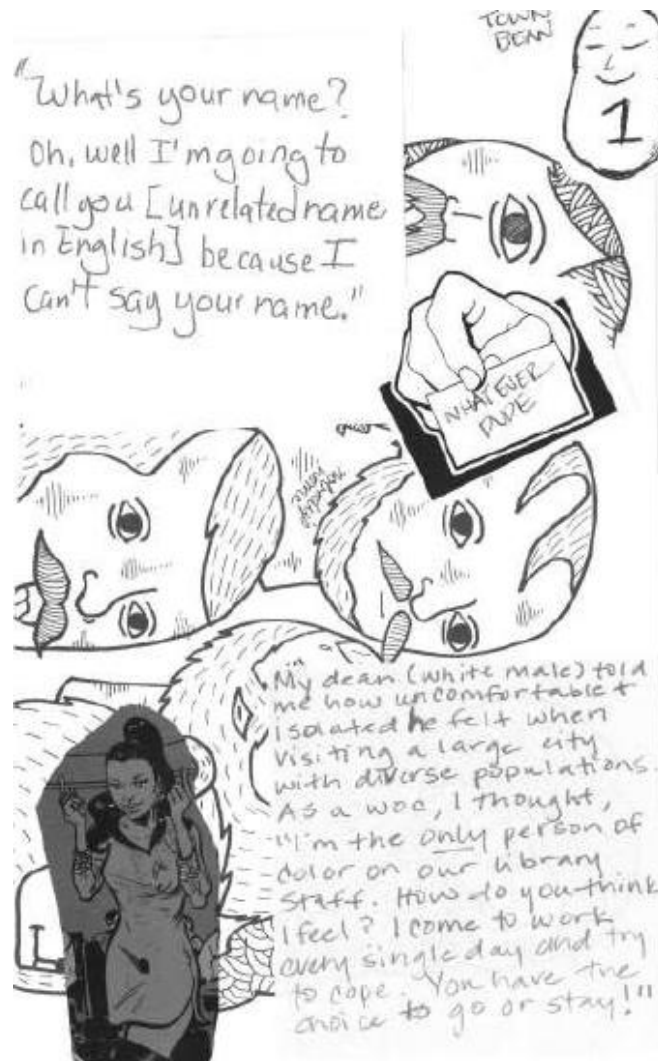 TOWN
BEAN
1
"What's your name?
Oh, well I'm going to
call you [unrelated name
in English] because I
can't say your name."
WHATEVER
DUDE
"My dean (white male) told
me how uncomfortable +
isolated he felt when
visiting a large city
with diverse populations.
As a woc, I thought,
"I'm the only person of
color on our library
staff. How do you think
I feel? I come to work
every single day and try
to cope. You have the
choice to go or stay!"